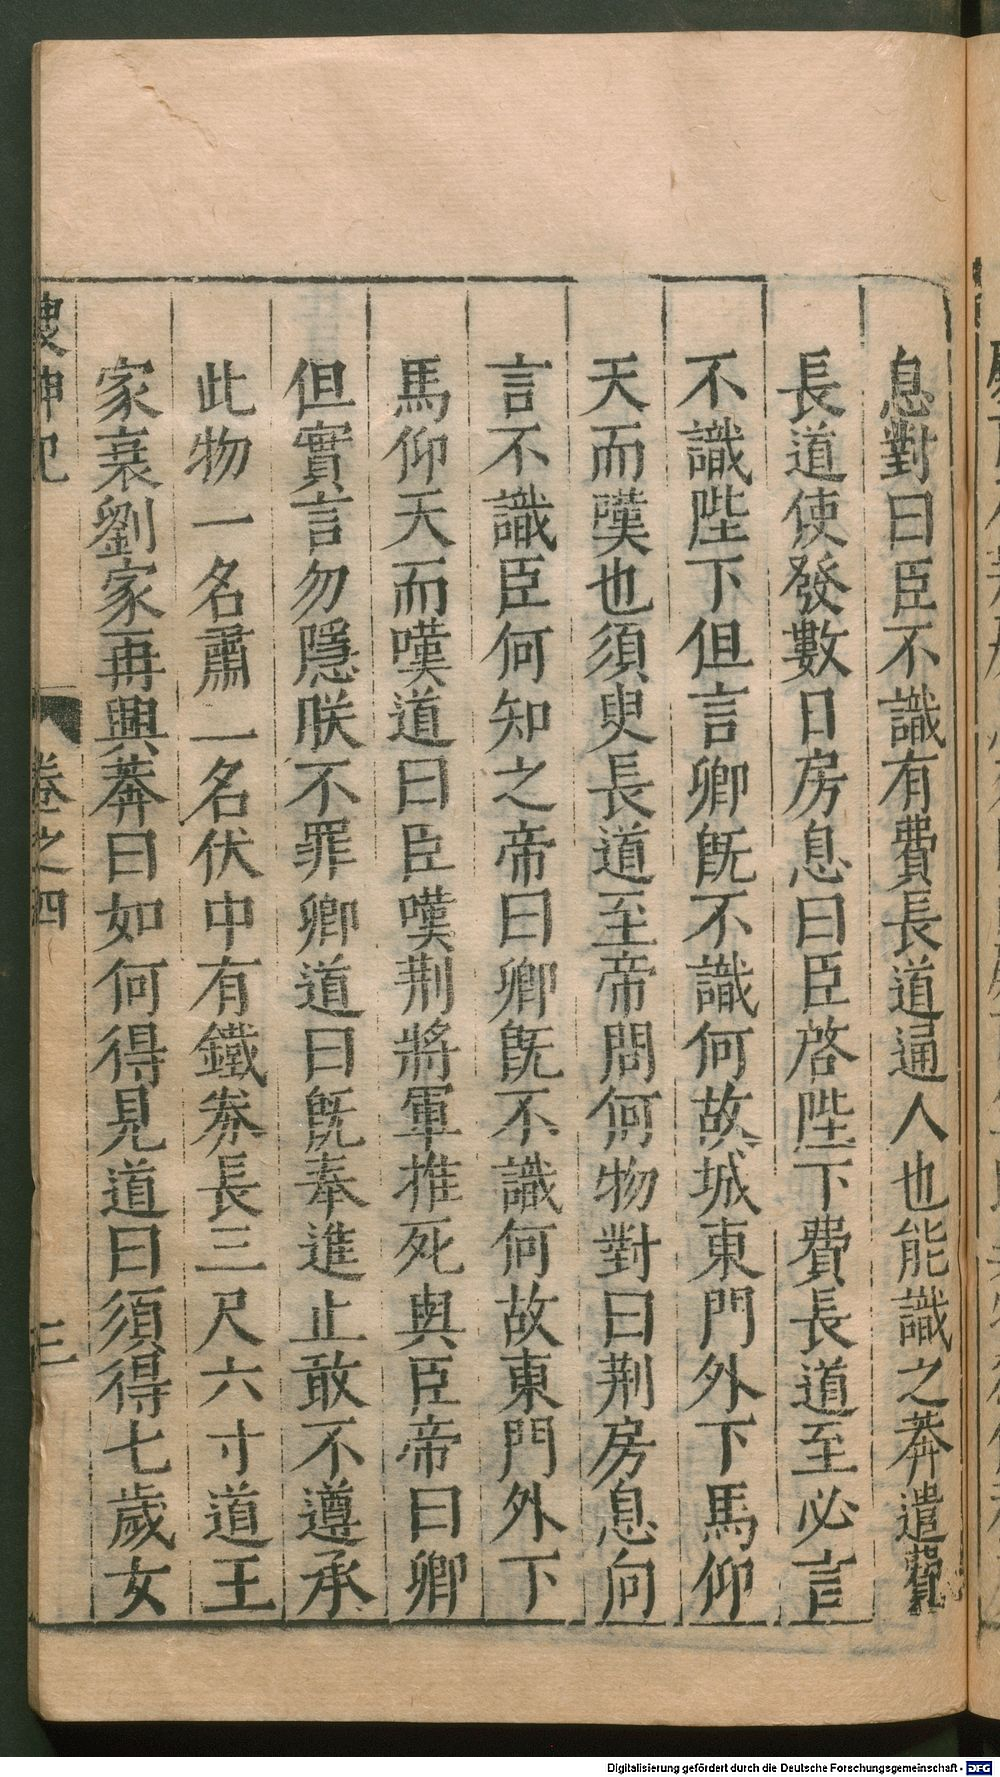 息對曰臣不識有費長道通人也能識之莽遣費
長道使發數日房息曰臣啓陛下費長道至必言
不識陛下但言卿旣不識何故城東門外下馬仰
天而嘆也須臾長道至帝問何物對曰荆房息向
言不識臣何知之帝曰卿旣不識何故東門外下
馬仰天而嘆道曰臣嘆荆將軍推死與臣帝曰卿
但實言勿隱朕不罪卿道曰旣奉進止敢不遵承
此物一名肅一名伏中有鐵券長三尺六寸道王
家衰劉家再興莽曰如何得見道曰須得七歲女
搜神記
卷之四
三
Digitalisierung gefördert durch die Deutsche Forschungsgemeinschaft - DFG